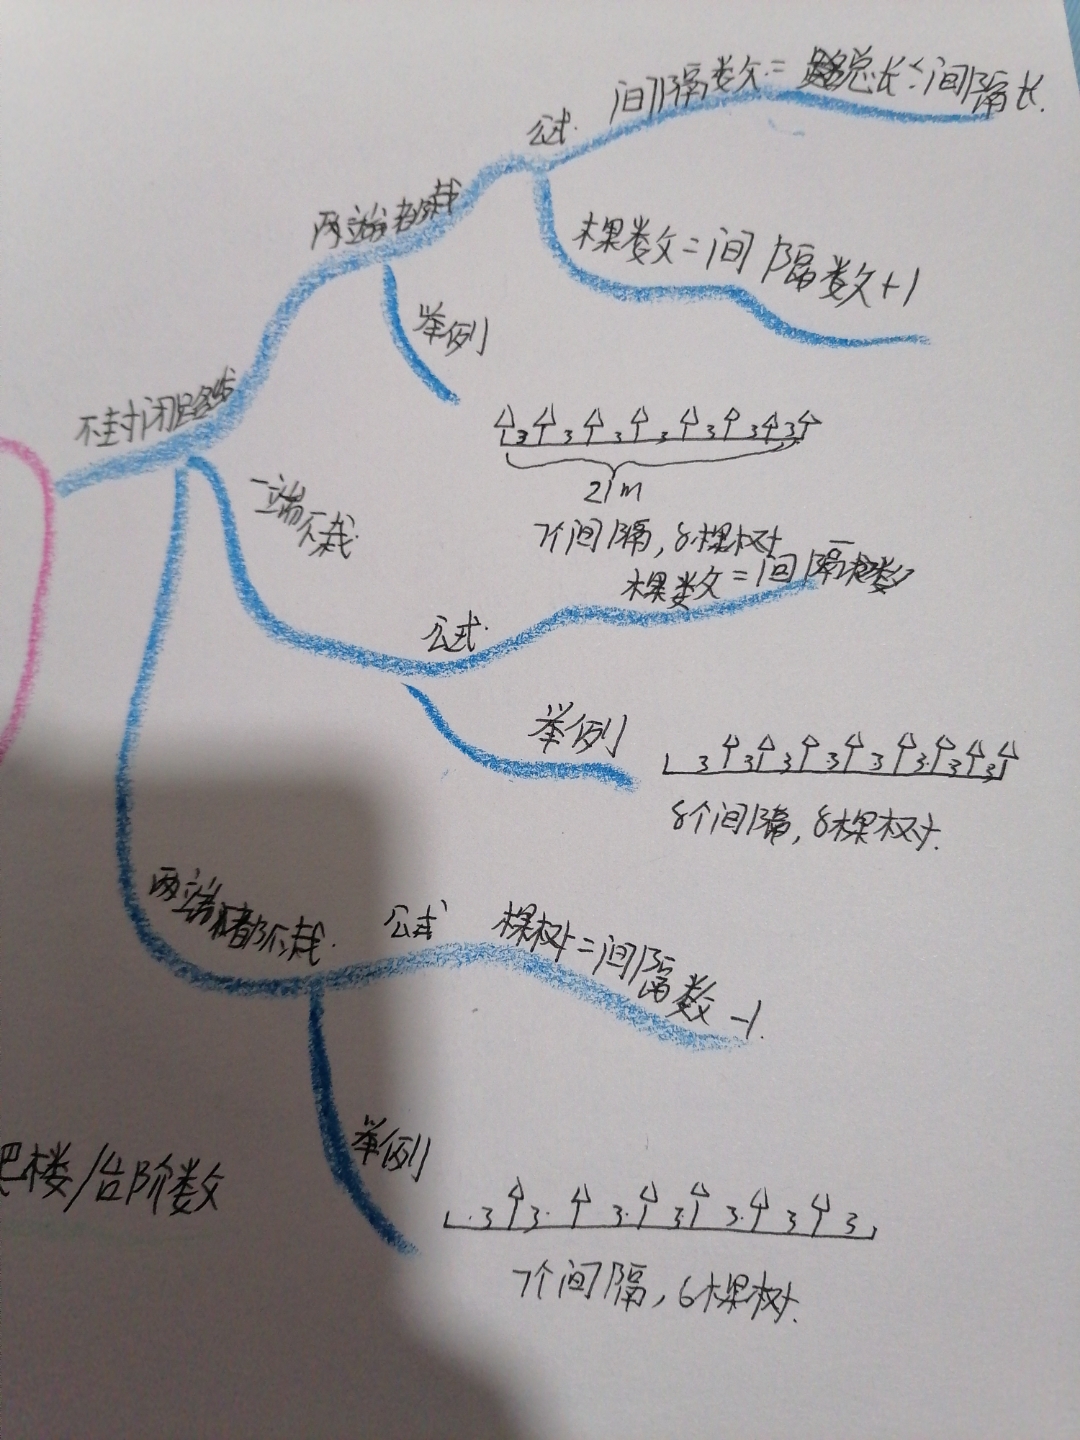 公式
间隔数=总长÷间隔长
两端都栽
棵数=间隔数+1
举例
不封闭路线
3 3 3 3 3 3 3
21m
7个间隔,8棵树
一端不栽
棵数=间隔数
公式
举例
3 3 3 3 3 3 3 3
8个间隔,8棵树.
两端都不栽.
公式
棵树=间隔数-1.
举例
3 3 3 3 3 3 3
7个间隔,6棵树.
楼/台阶数